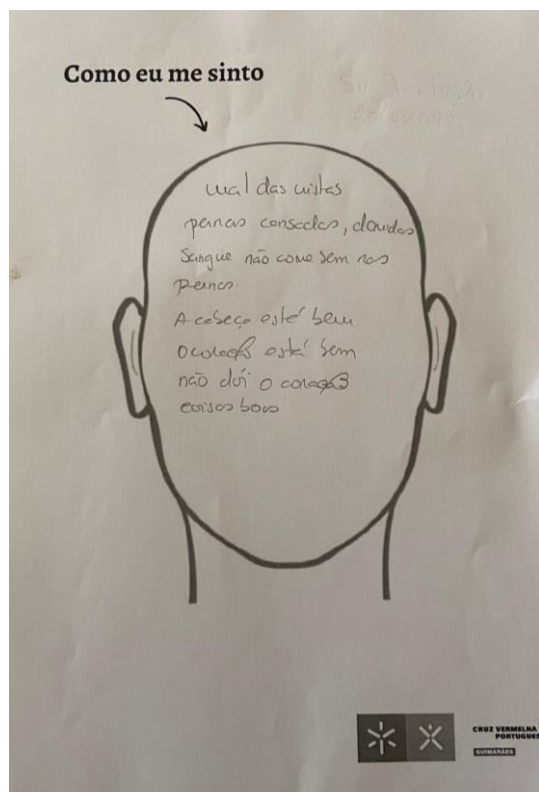 Como eu me sinto
mal das vistas
pernas cansadas, doridas
Sangue não corre bem nas
pernas.
A cabeça está bem
O coração está bem
não dói o coração
coisas boas
CRUZ VERMELHA
PORTUGUES
GUIMARÃES